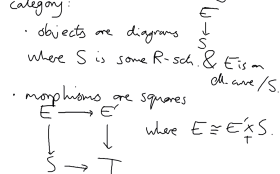 category:
E
· objects are diagrams ↓
S
where S is some R-sch. & E is an
ell. curve /S.
· morphisms are squares
E → E'
↓ ↓ where E ≅ E' ×_T S.
S → T